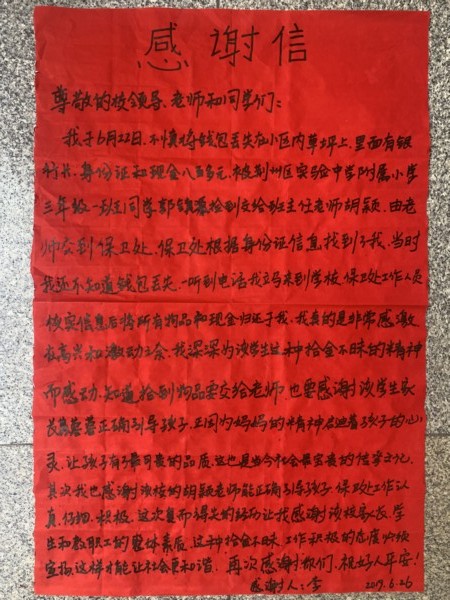 感谢信
尊敬的校领导、老师和同学们：
我于6月22日,不慎将钱包丢失在小区内草坪上,里面有银
行卡、身份证和现金八百多元,被荆州区实验中学附属小学
三年级一班同学郭 捡到交给班主任老师胡颖,由老
师交到保卫处,保卫处根据身份证信息找到了我,当时
我还不知道钱包丢失,一听到电话我立马来到学校,保卫处工作人员
核实信息后将所有物品和现金归还于我,我真的是非常感激
在高兴和激动之余,我深深为该学生这种拾金不昧的精神
而感动,知道捡到物品要交给老师,也要感谢该学生家
长 正确引导孩子,正因为妈妈的精神 着孩子的心
灵,让孩子有了最可贵的品质,这也是当今社会最宝贵的 文化,
其次我也感谢该校的胡颖老师能正确引导孩子,保卫处工作认
真、仔细、积极,这次复而得失的经历让我感谢该校家长、学
生和教职工的整体素质,这种拾金不昧、工作积极的态度
这样才能让社会更和谐,再次感谢都们,祝好人平安!
感谢人:李
2017.6.26